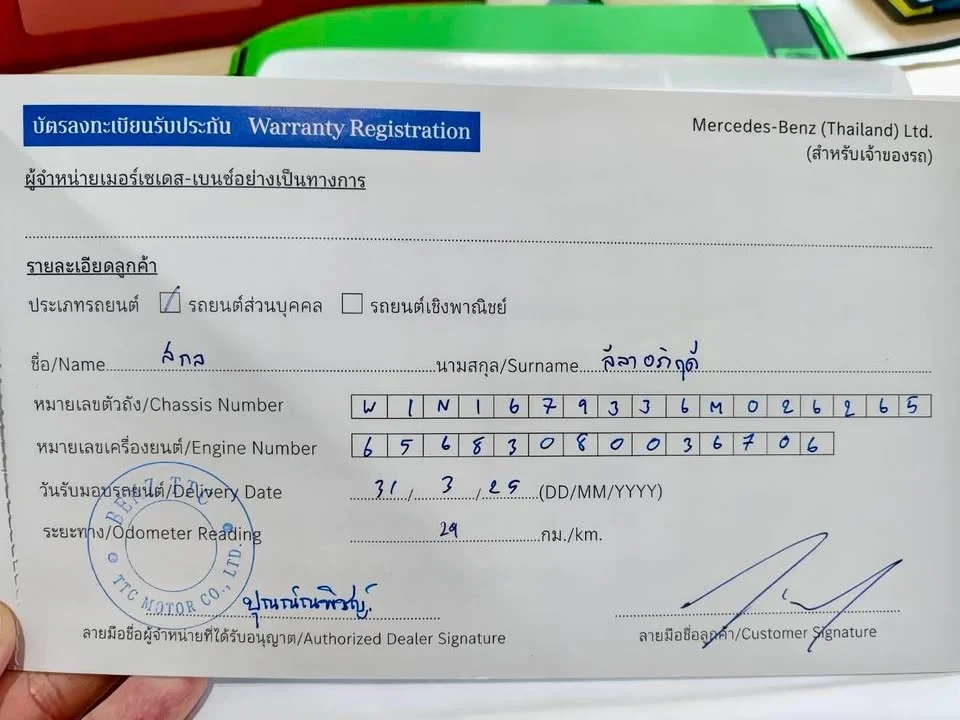 บัตรลงทะเบียนรับประกัน Warranty Registration
Mercedes-Benz (Thailand) Ltd.
(สำหรับเจ้าของรถ)
ผู้จำหน่ายเมอร์เซเดส-เบนซ์อย่างเป็นทางการ
รายละเอียดลูกค้า
ประเภทรถยนต์ รถยนต์ส่วนบุคคล รถยนต์เชิงพาณิชย์
ชื่อ/Name สกล นามสกุล/Surname ลีลาอภิฤดี
หมายเลขตัวถัง/Chassis Number W1N1679336M026265
หมายเลขเครื่องยนต์/Engine Number 6568308003670 6
วันรับมอบรถยนต์/Delivery Date 31/3/25 (DD/MM/YYYY)
ระยะทาง/Odometer Reading 29 กม./km.
BENZ TTC
TTC MOTOR CO., LTD.
ลายมือชื่อผู้จำหน่ายที่ได้รับอนุญาต/Authorized Dealer Signature
ลายมือชื่อลูกค้า/Customer Signature